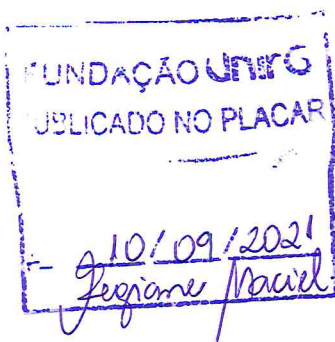 FUNDAÇÃO UnirG
PUBLICADO NO PLACAR
10/09/2021
Regiane Maciel